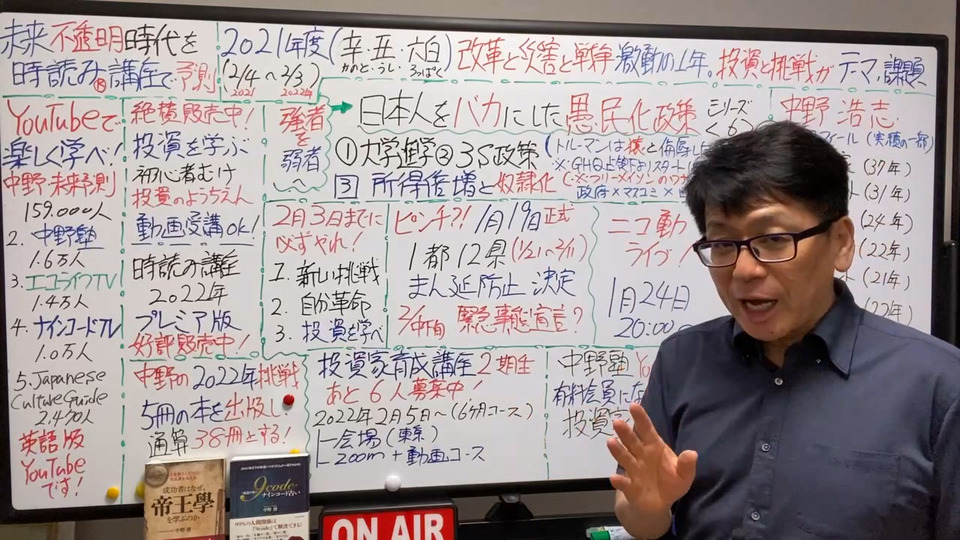 未来 不透明時代を
時読み®講座で予測
2021年度(辛・丑・六白)
かのと・うし・ろっぱく
(2/4〜2/3)
2021 2022年
改革と災害と戦争 激動の1年。投資と挑戦がテーマ、課題
YouTubeで
楽しく学べ!
中野・未来予測
159.000人
2. 中野塾
1.6万人
3. エコライフTV
1.4万人
4. ナインコードTV
1.0万人
5. Japanese
Culture Guide
英語版
YouTube
です!
絶横販売中!
投資を学ぶ
初心者むけ
投資のようちえん
動画受講OK!
時読み講座
2022年
プレミア版
好評販売中!
中野の2022年挑戦
5冊の本を出版し
通算38冊とする!
強者
を
弱者
へ
日本人をバカにした愚民化政策
シリーズ
①大学進学②3S政策
③所得倍増と奴隷化
2月3日までに
必ずやれ!
1. 新しい挑戦
2. 自分革命
3. 投資を学べ
ピンチ?! 1月19日正式
1都12県(1/21〜2/11)
まん延防止 決定
2/中旬 緊急事態宣言?
ニコ動
ライブ!
1月24日
20:00
中野 浩志
フィール(実績の一部)
(39年)
(31年)
(24年)
(22年)
(21年)
(22年)
投資家育成講座 2期生
あと6人募集中!
2022年2月5日〜(6ヶ月コース)
会場(東京)
zoom + 動画コース
中野塾
有料会員にな
投資
成功者はなぜ、
帝王學
を学ぶのか
9code
ナインコード占い
ON AIR